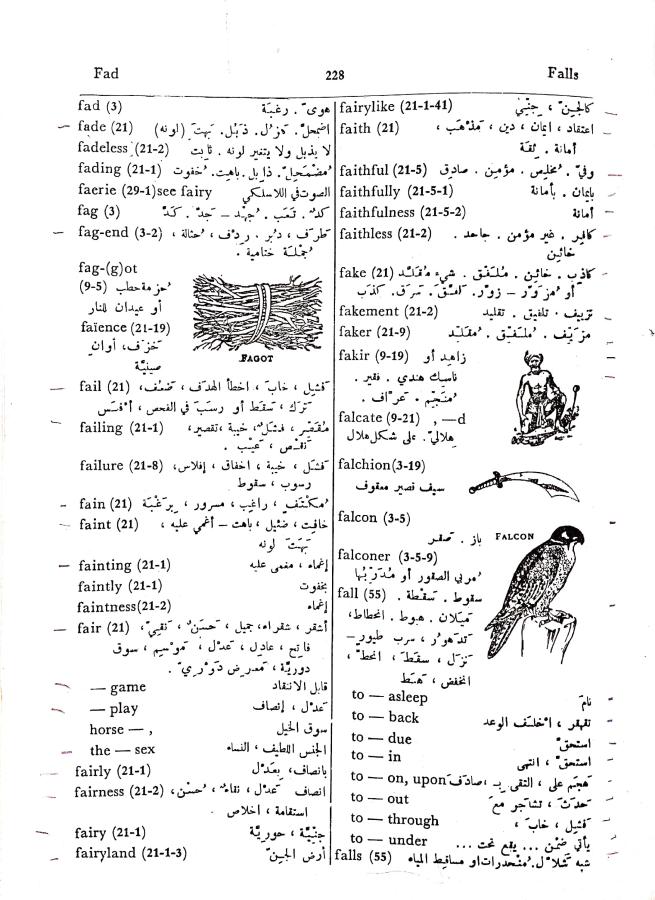 Fad 228 Falls
fad (3) هوى . رغبة
fade (21) اضمحلّ . هزل . ذبل . بهت (لونه)
fadeless (21-2) لا يذبل ولا يتغير لونه . ثابت
fading (21-1) مضمحلّ . ذابل . باهت . خفوت
faerie (29-1) see fairy الصوت في اللاسلكي
fag (3) كدّ . تعب . جهد – جدّ . كدّ
fag-end (3-2) طرف ، دبر . ردف ، حثالة ،
جملة ختامية .
fag-(g)ot
(9-5) حزمة حطب
أو عيدان للنار
faïence (21-19)
خزف ، أوان
صينيّة
FAGOT
fail (21) فشل ، خاب ، اخطأ الهدف ، ضعف ،
ترك ، سقط أو رسب في الفحص ، أفلس
failing (21-1) مقصّر ، فشل ، خيبة ، تقصير ،
نقص ، عيب .
failure (21-8) فشل ، خيبة ، اخفاق ، إفلاس ،
رسوب ، سقوط
fain (21) مكتنف ، راغب ، مسرور ، برغبة
faint (21) خافت ، ضئيل ، باهت – أغمي عليه ،
بهت لونه
fainting (21-1) إغماء ، مغمى عليه
faintly (21-1) بخفوت
faintness (21-2) إغماء
fair (21) أشقر ، شقراء ، جميل ، حسن ، نقيّ ،
فاتح ، عادل ، عدل ، موسم ، سوق
دوريّة ، معرض دوريّ .
— game قابل الانتقاد
— play عدل ، إنصاف
horse — , سوق الخيل
the — sex الجنس اللطيف ، النساء
fairly (21-1) بانصاف ، بعدل
fairness (21-2) انصاف عدل ، نقاء ، حسن ،
استقامة ، اخلاص .
fairy (21-1) جنيّة ، حوريّة
fairyland (21-1-3) أرض الجنّ
fairylike (21-1-41) كالجنّ ، جنّي
faith (21) اعتقاد ، ايمان ، دين ، مذهب ،
أمانة . ثقة
faithful (21-5) وفيّ . مخلص . مؤمن . صادق
faithfully (21-5-1) بايمان . بأمانة
faithfulness (21-5-2) أمانة
faithless (21-2) كافر . غير مؤمن . جاحد .
خائن
fake (21) كاذب . خائن . ملفق . شيء مقلد
أو مزوّر – زور . لفق . سرق . كذب
fakement (21-2) تزييف . تلفيق . تقليد
faker (21-9) مزيّف . ملفّق . مقلّد
fakir (9-19) زاهد أو
ناسك هندي . فقير .
منجّم . عرّاف .
falcate (9-21) , —d
هلاليّ . على شكل هلال
falchion (3-19)
سيف قصير معقوف
falcon (3-5)
باز . صقر
FALCON
falconer (3-5-9)
مربي الصقور أو مدرّبها
fall (55) سقوط . سقطة .
ميلان . هبوط . انحطاط ،
تدهور ، سرب طيور –
نزل ، سقط ، انحطّ ،
انخفض ، هبط
to — asleep نام
to — back تقهقر ، اخلف الوعد
to — due استحقّ
to — in استحقّ ، انتهى
to — on, upon هجم على ، التقى بـ ، صادف
to — out حدث ، تشاجر مع
to — through فشل ، خاب ،
to — under يأتي ضمن ... يقع تحت ...
falls (55) شبه شلال . منحدرات او مساقط المياه